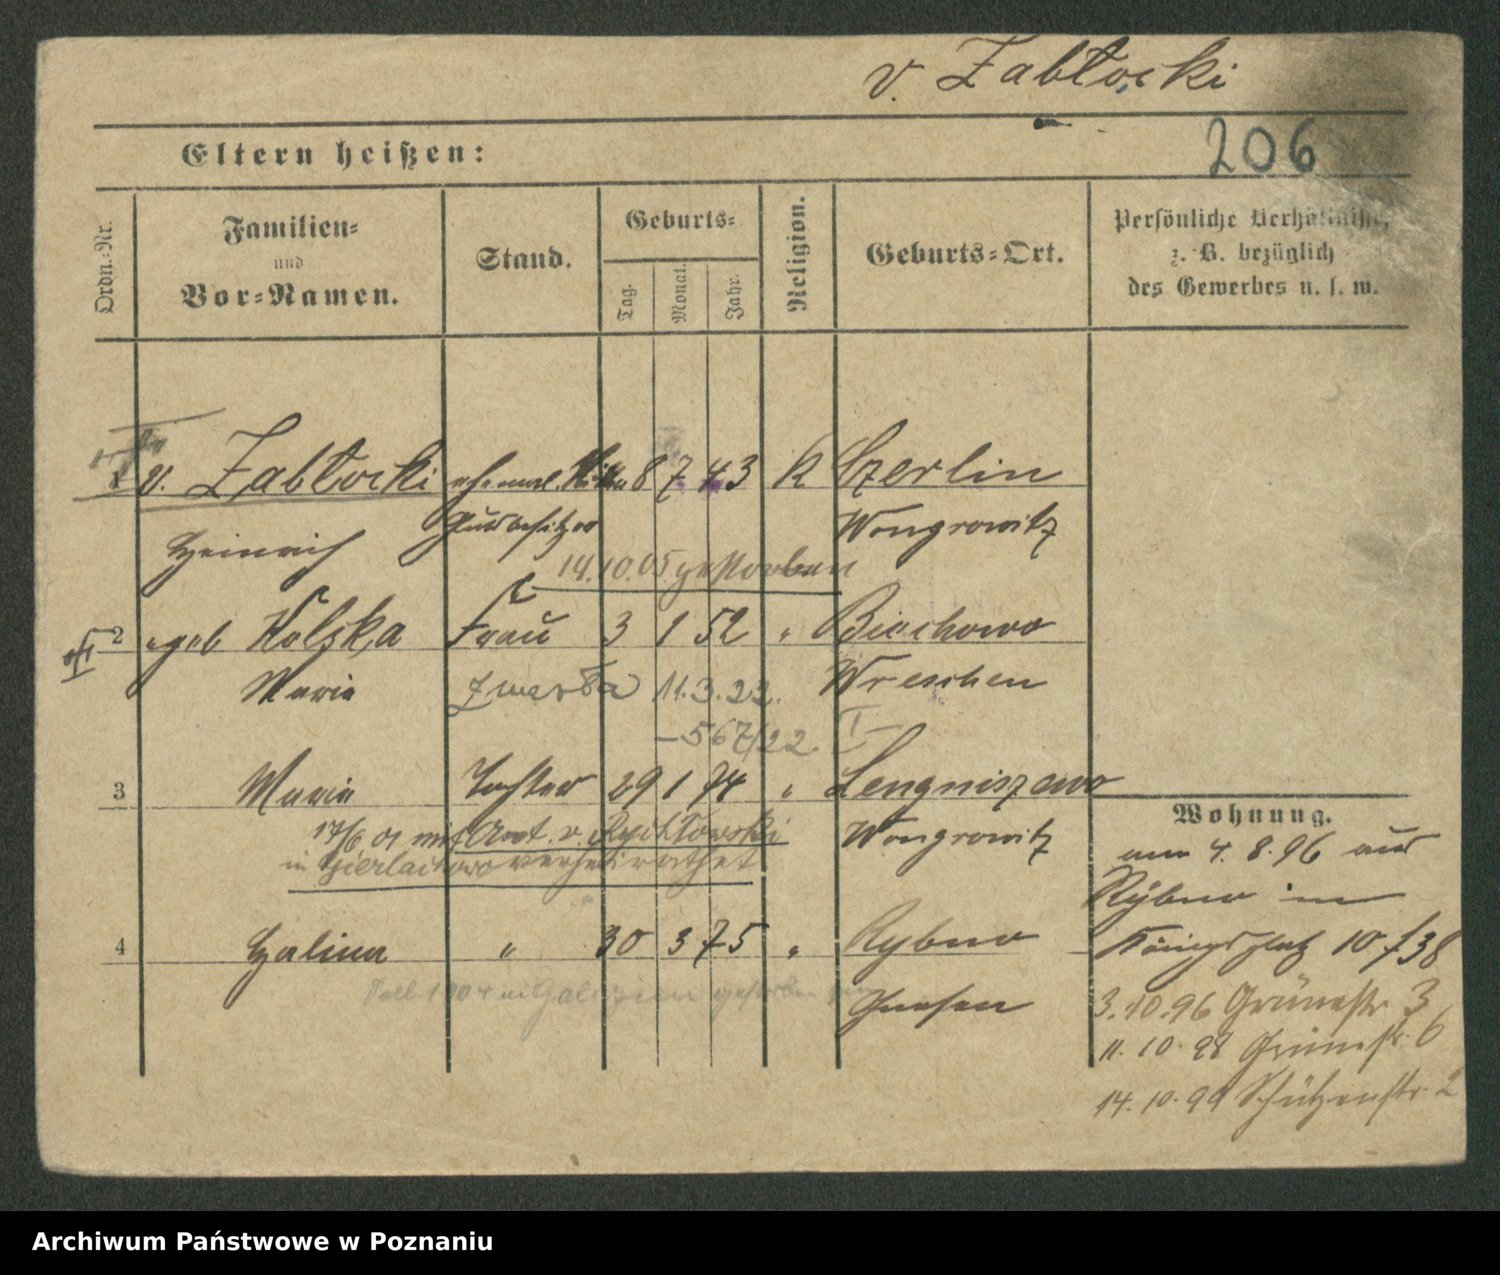 v. Zabłocki
206
Eltern heißen:
Ordn.-Nr.
Familien-
und
Vor-Namen.
Stand.
Geburts-
Tag.
Monat.
Jahr.
Religion.
Geburts-Ort.
Persönliche Verhältnisse,
z. B. bezüglich
des Gewerbes u. s. w.
1 v. Zabłocki ehemal. 8 7 43 k Czerlin
Heinrich Wongrowitz
14.10.05 gestorben
2 geb Kolska Frau 3 1 52 " Biechowo
Maria zmarła 11.3.22. Wreschen
567/22.
3 Maria Tochter 29 1 74 " Lengniszewo
17/6 01 mit v. Rychłowski Wongrowitz
in Gierlachowo verheirathet
4 Halina " 30 3 75 " Rybno
1904 in Galizien gestorben Gnesen
Wohnung.
am 4. 8. 96 aus
Rybno in
Königsplatz 10 f 38
3. 10. 96 Grünestr 3
11. 10. 98 Grünestr. 6
14. 10. 99 Schützenstr. 2
Archiwum Państwowe w Poznaniu